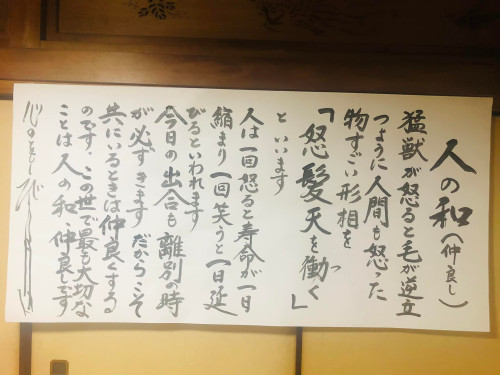 人の和(仲良し)
猛獣が怒ると毛が逆立
つように人間も怒った
物すごい形相を
「怒髪天を働く」
つ
といいます
人は一回怒ると寿命が一日
縮まり一回笑うと一日延
びるといわれます
今日の出会も離別の時
が必ずきます だからこそ
共にいるときは仲良くする
のです、この世で最も大切な
ことは人の和 仲良しです